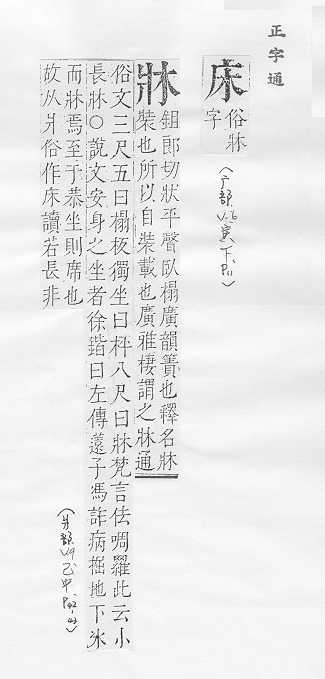 正字通
床 俗牀
字
(广部 V.6 寅下 P.11)
牀 鉏郎切狀平聲臥榻廣韻簀也釋名牀
裝也所以自裝載也廣雅棲謂之牀通
俗文三尺五曰榻板獨坐曰枰八尺曰牀梵言佉啁羅此云小
長牀○說文安身之坐者徐鍇曰左傳薳子馮詐病掘地下冰
而牀焉至于恭坐則席也
故从爿俗作床讀若長非
(爿部 V.9 巳中 P.42-43)